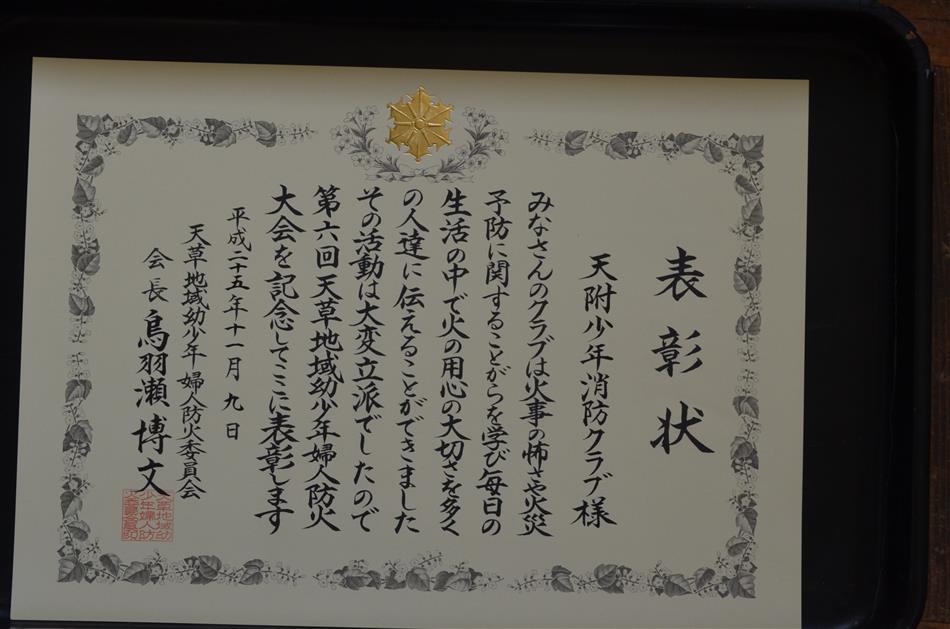 表彰状
天附少年消防クラブ様
みなさんのクラブは火事の怖さや火災
予防に関することがらを学び毎日の
生活の中で火の用心の大切さを多く
の人達に伝えることができました
その活動は大変立派でしたので
第六回天草地域幼少年婦人防火
大会を記念してここに表彰します
平成二十五年十一月九日
天草地域幼少年婦人防火委員会
会長 鳥羽瀬博文